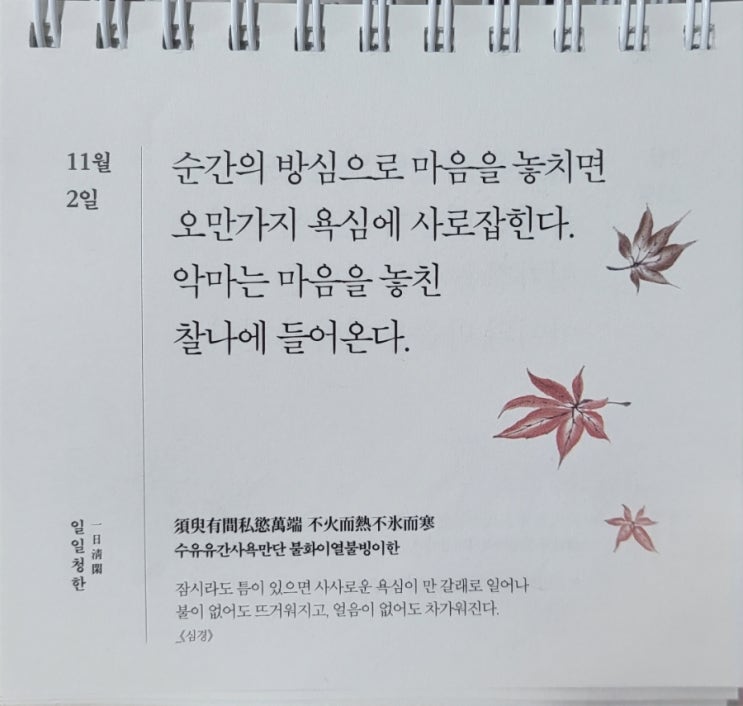 11월
2일
순간의 방심으로 마음을 놓치면
오만가지 욕심에 사로잡힌다.
악마는 마음을 놓친
찰나에 들어온다.
일일청한
一日清閑
須臾有間私慾萬端 不火而熱不氷而寒
수유유간사욕만단 불화이열불빙이한
잠시라도 틈이 있으면 사사로운 욕심이 만 갈래로 일어나
불이 없어도 뜨거워지고, 얼음이 없어도 차가워진다.
_《심경》